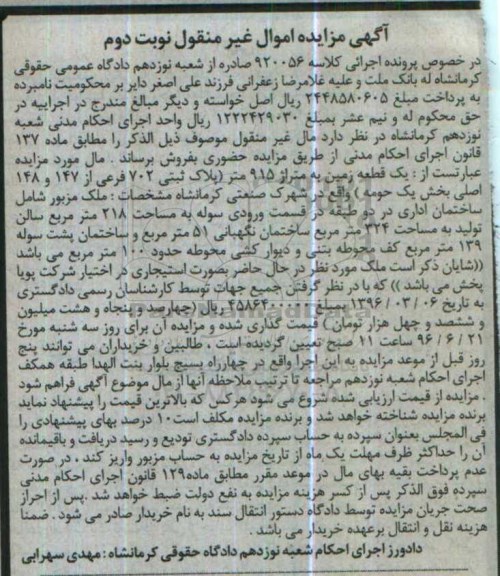 آگهی مزایده اموال غیر منقول نوبت دوم
در خصوص پرونده اجرائی کلاسه ۹۲۰۰۵۶ صادره از شعبه نوزدهم دادگاه عمومی حقوقی
کرمانشاه له بانک ملت و علیه غلامرضا زعفرانی فرزند علی اصغر دایر بر محکومیت نامبرده
به پرداخت مبلغ ۲۴۴۸۵۸۰۶۰۵ ریال اصل خواسته و دیگر مبالغ مندرج در اجراییه در
حق محکوم له و نیم عشر بمبلغ ۱۲۲۲۴۲۹۰۳۰ ریال واحد اجرای احکام مدنی شعبه
نوزدهم کرمانشاه در نظر دارد مال غیر منقول موصوف ذیل الذکر را مطابق ماده ۱۳۷
قانون اجرای احکام مدنی از طریق مزایده حضوری بفروش برساند . مال مورد مزایده
عبارتست از : یک قطعه زمین به متراژ ۹۱۵ متر (پلاک ثبتی ۷۰۲ فرعی از ۱۴۷ و ۱۴۸
اصلی بخش یک حومه )واقع در شهرک صنعتی کرمانشاه مشخصات : ملک مزبور شامل
ساختمان اداری در دو طبقه در قسمت ورودی سوله به مساحت ۲۱۸ متر مربع سالن
تولید به مساحت ۳۲۴ متر مربع ساختمان نگهبانی ۵۱ متر مربع و ساختمان پشت سوله
۱۳۹ متر مربع کف محوطه بتنی و دیوار کشی محوطه حدود ۱۰۰ متر مربع می باشد
((شایان ذکر است ملک مورد نظر در حال حاضر بصورت استیجاری در اختیار شرکت پویا
پخش می باشد )) که با در نظر گرفتن جمیع جهات توسط کارشناسان رسمی دادگستری
به تاریخ ۱۳۹۶/۰۳/۰۶ بمبلغ ۴۵۸۶۴۰۰۰۰۰ ریال(چهارصد و پنجاه و هشت میلیون
و ششصد و چهل هزار تومان ) قیمت گذاری شده و مزایده آن برای روز سه شنبه مورخ
۹۶/۶/۲۱ ساعت ۱۱ صبح تعیین گردیده است . طالبین و خریداران می توانند پنج
روز قبل از موعد مزایده به این اجرا واقع در چهارراه بسیج بلوار بنت الهدا طبقه همکف
اجرای احکام شعبه نوزدهم مراجعه تا ترتیب ملاحظه آنها از مال موضوع آگهی فراهم شود
. مزایده از قیمت ارزیابی شده شروع می شود هرکس که بالاترین قیمت را پیشنهاد نماید
برنده مزایده شناخته خواهد شد و برنده مزایده مکلف است۱۰ درصد بهای پیشنهادی را
فی المجلس بعنوان سپرده به حساب سپرده دادگستری تودیع و رسید دریافت و باقیمانده
آن را حداکثر ظرف مهلت یک ماه از تاریخ مزایده به حساب مزبور واریز کند . در صورت
عدم پرداخت بقیه بهای مال در موعد مقرر مطابق ماده۱۲۹ قانون اجرای احکام مدنی
سپرده فوق الذکر پس از کسر هزینه مزایده به نفع دولت ضبط خواهد شد .پس از احراز
صحت جریان مزایده توسط دادگاه دستور انتقال سند به نام خریدار صادر می شود . ضمنا
هزینه نقل و انتقال برعهده خریدار می باشد .
دادورز اجرای احکام شعبه نوزدهم دادگاه حقوقی کرمانشاه : مهدی سهرابی